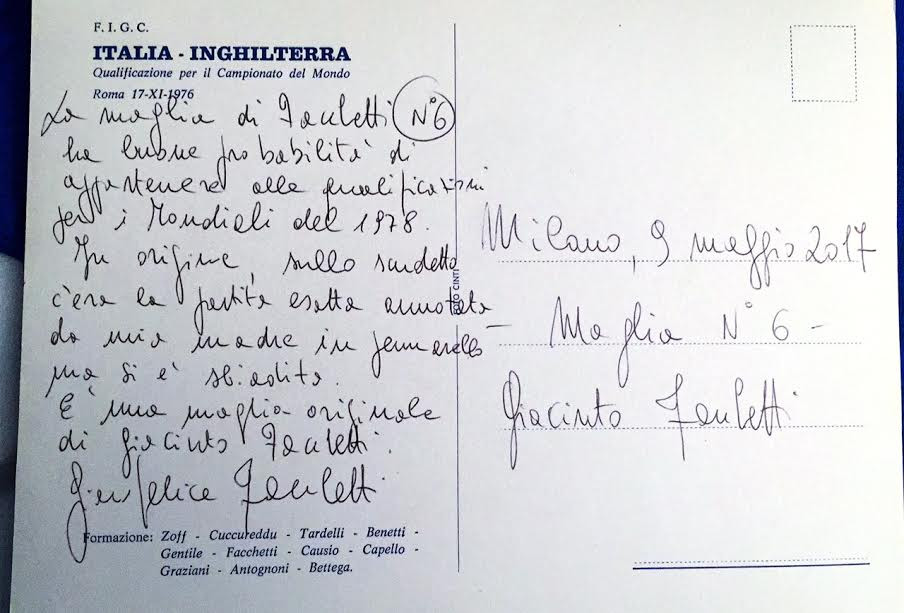 F. I. G. C.
ITALIA - INGHILTERRA
Qualificazione per il Campionato del Mondo
Roma 17-XI-1976
La maglia di Facchetti N°6
ha buone probabilità di
appartenere alle qualificazioni
per i Mondiali del 1978.
In origine, sullo scudetto
c'era la partita esatta annotata
da mia madre in pennarello
ma si è sbiadita.
È una maglia originale
di Giacinto Facchetti.
Gianfelice Facchetti
Formazione: Zoff - Cuccureddu - Tardelli - Benetti -
Gentile - Facchetti - Causio - Capello -
Graziani - Antognoni - Bettega.
FOTO CINTI
Milano, 9 maggio 2017
- Maglia N° 6 -
Giacinto Facchetti